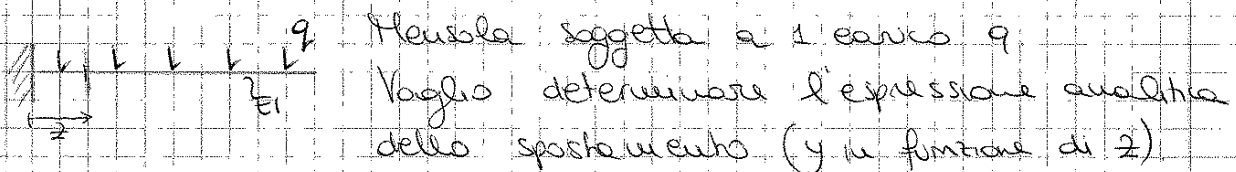 q Mensola soggetta a 1 carico q.
EI Voglio determinare l'espressione analitica
z dello spostamento (y in funzione di z)